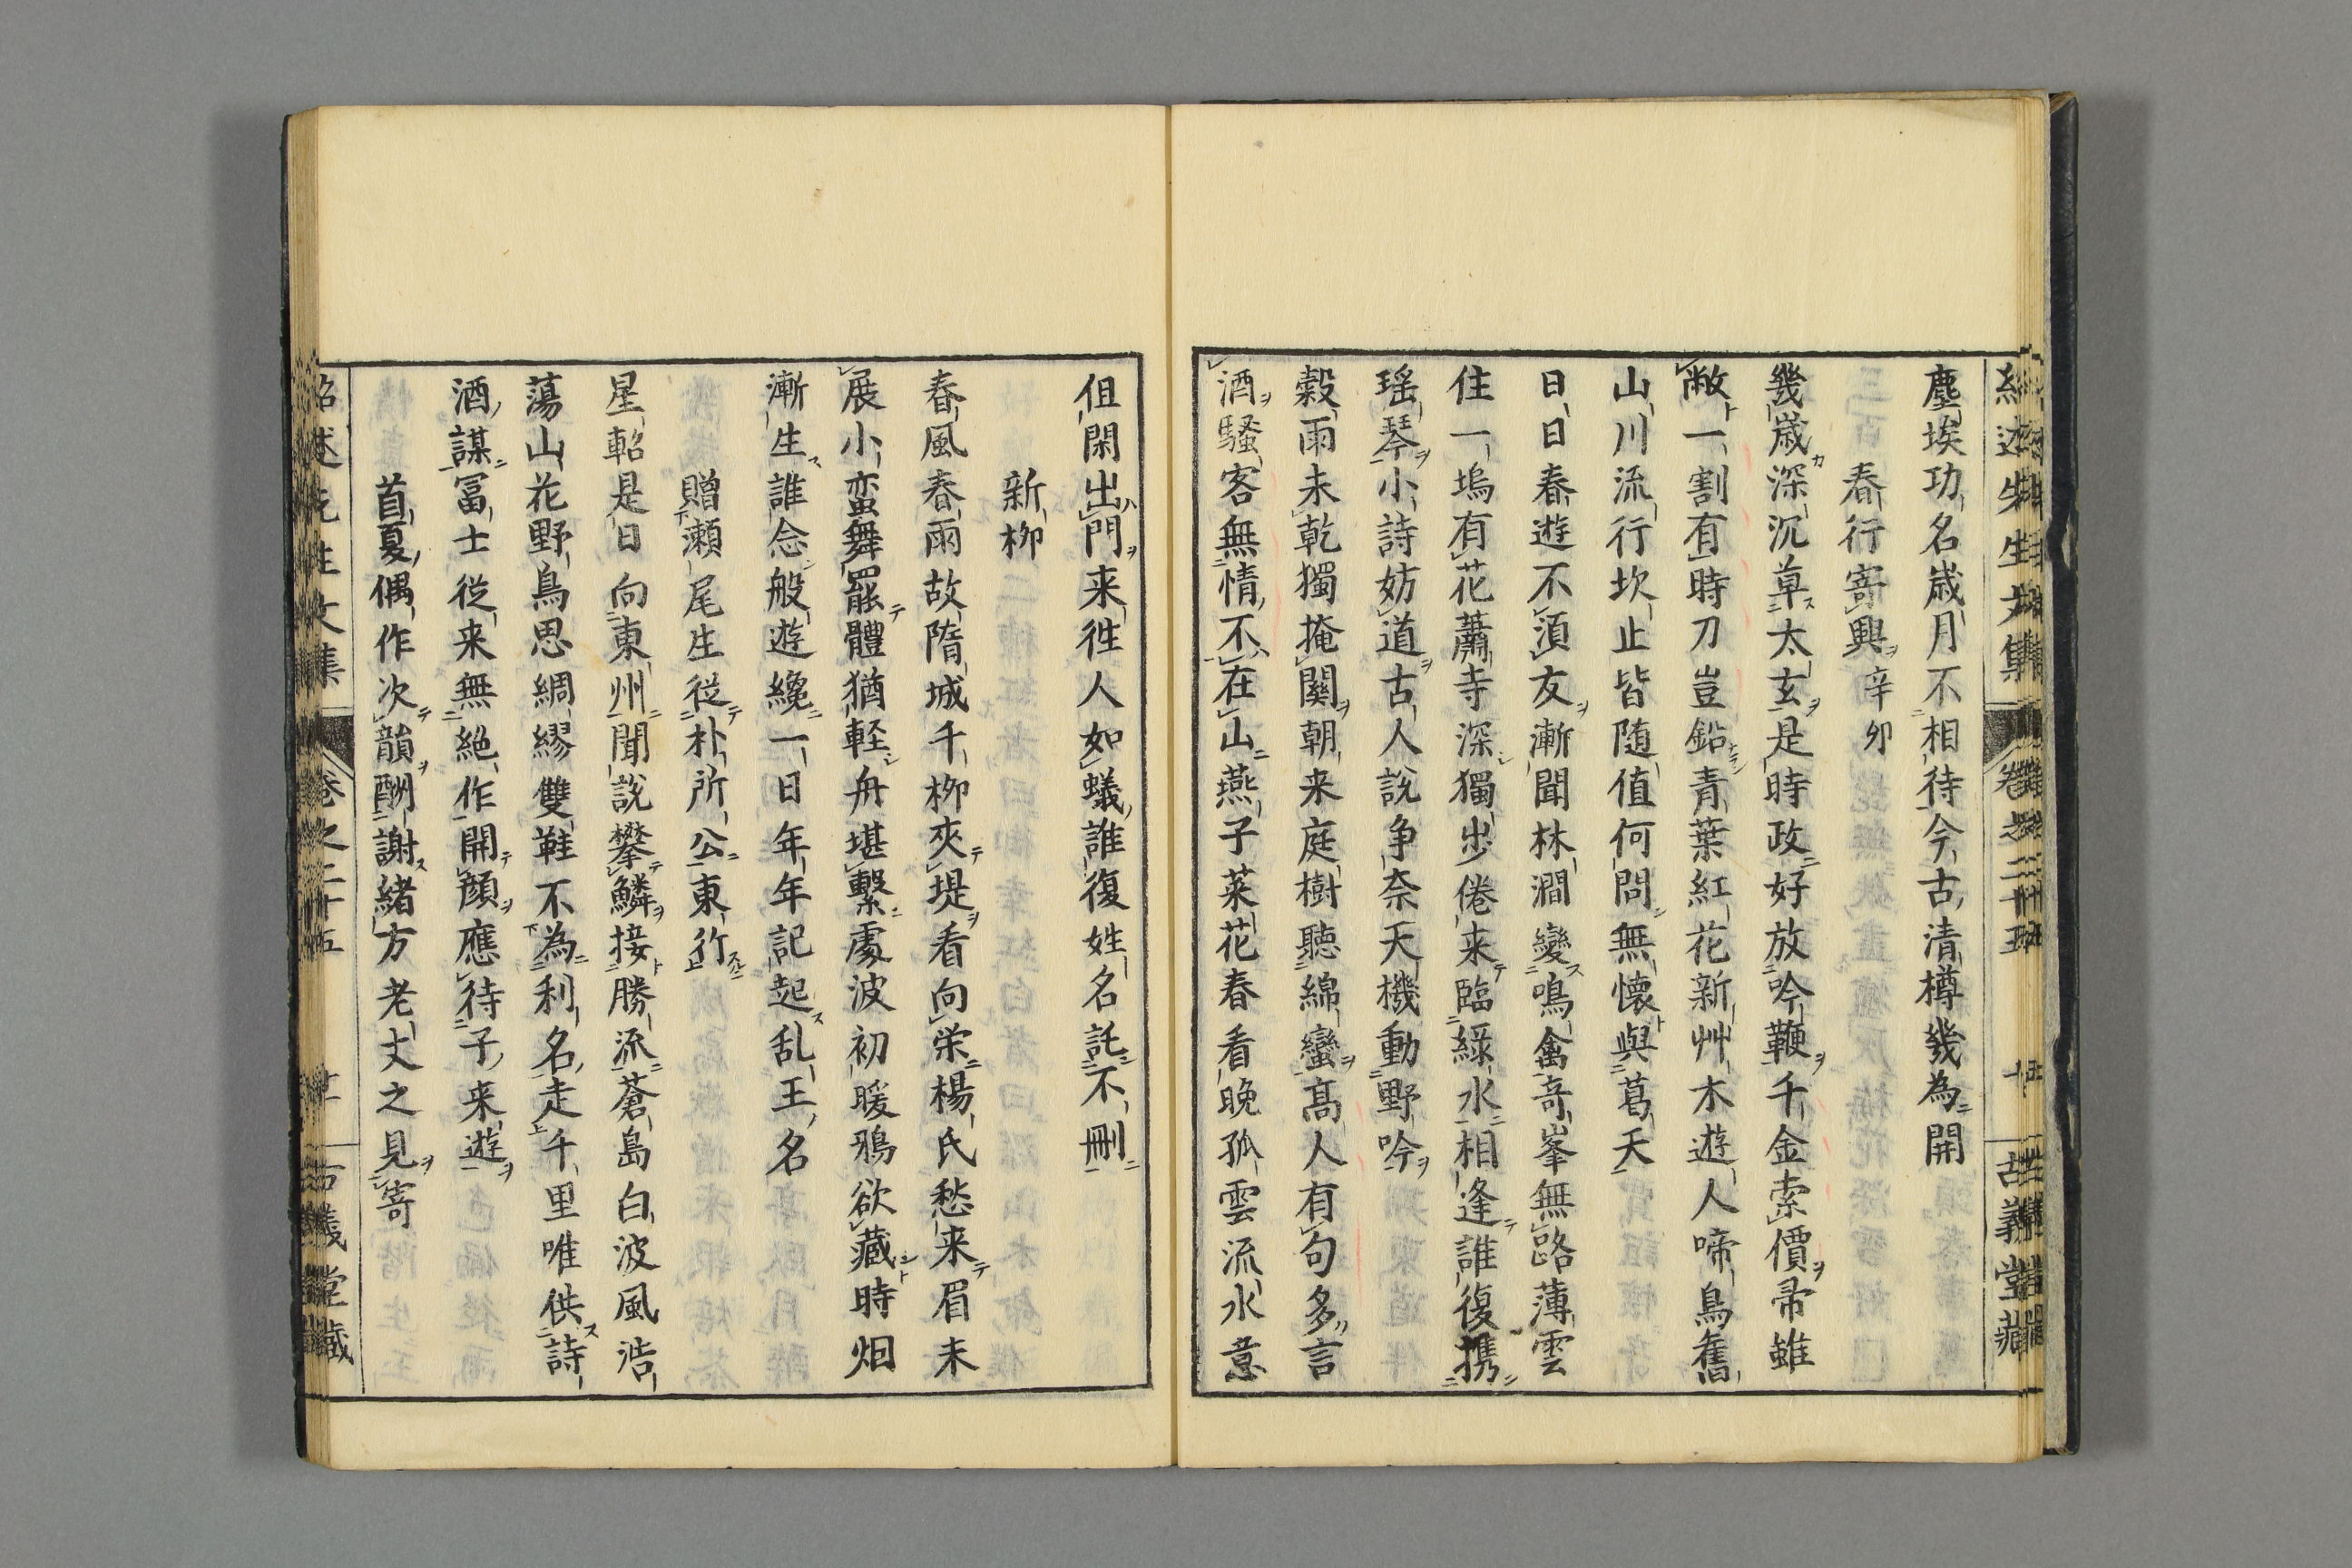 塵埃功名歳月不相待今古清樽幾為開
春行寄興辛卯
幾歳深沉草太玄是時政好放吟鞭千金索價帚雖
敝一割有時刀豈鉛青葉紅花新艸木遊人啼鳥舊
山川流行坎止皆随值何問無懐與葛天
日日春遊不須友漸聞林澗變鳴禽奇峯無路薄雲
住一塢有花蕭寺深獨歩倦来臨緑水相逢誰復携
瑶琴小詩妨道古人說争奈天機動野吟
穀雨未乾獨掩關朝来庭樹聽綿蠻髙人有句多言
酒騷客無情不在山燕子菜花春看晚孤雲流水意
俱閑出門来徃人如蟻誰復姓名託不刪
新栁
春風春雨故隋城千栁夾堤看向栄楊氏愁来眉未
展小蛮舞罷體猶軽舟堪繫處波初暖鴉欲藏時烟
漸生誰念般遊纔一日年年記起乱王名
贈瀬尾生從朴所公東行
星軺是日向東州聞說攀鱗接勝流蒼島白波風浩
蕩山花野鳥思綢繆雙鞋不為利名走千里唯供詩
酒謀冨士從来無絶作開顔應待子来遊
首夏偶作次韻酬謝緒方老丈之見寄
紹述先生文集
卷之二十五
古義堂藏